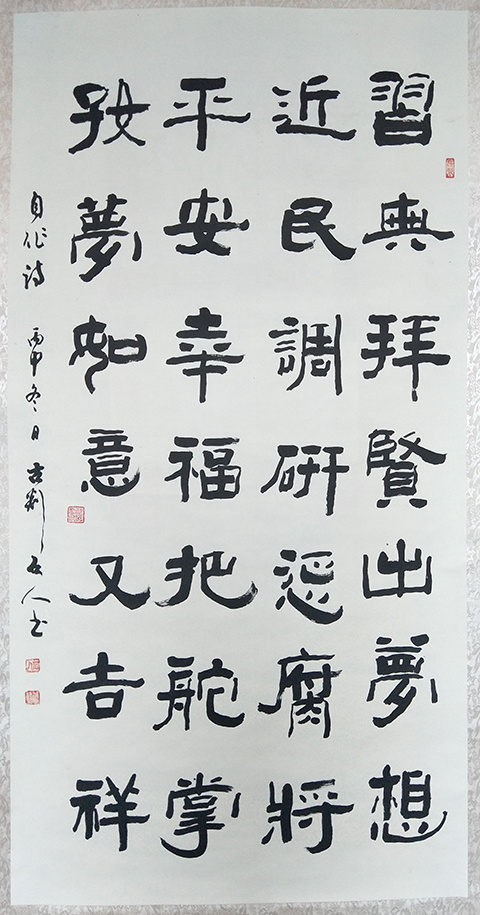 習典拜賢出夢想
近民調研惩腐將
平安幸福把舵掌
好夢如意又吉祥
自作詩 丙申冬日古荆人书